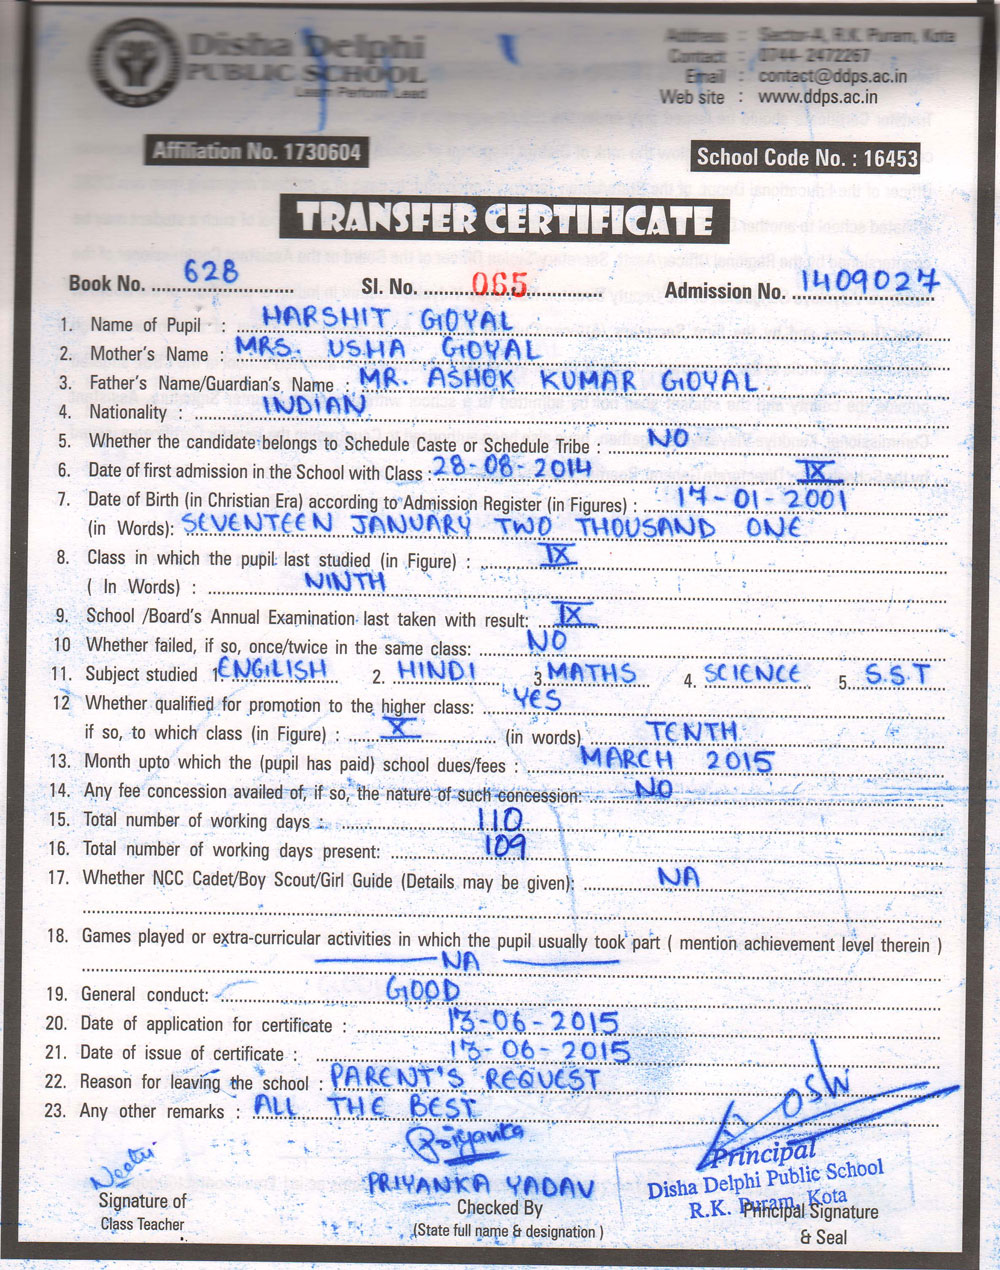 Disha Delphi
PUBLIC SCHOOL
Learn Perform Lead
Address : Sector-A, R.K. Puram, Kota
Contact : 0744- 2472267
Email : contact@ddps.ac.in
Web site : www.ddps.ac.in
Affiliation No. 1730604
School Code No. : 16453
TRANSFER CERTIFICATE
Book No. 628 Sl. No. 065 Admission No. 1409027
1. Name of Pupil : HARSHIT GOYAL
2. Mother's Name : MRS. USHA GOYAL
3. Father's Name/Guardian's Name : MR. ASHOK KUMAR GOYAL
4. Nationality : INDIAN
5. Whether the candidate belongs to Schedule Caste or Schedule Tribe : NO
6. Date of first admission in the School with Class : 28-08-2014 IX
7. Date of Birth (in Christian Era) according to Admission Register (in Figures) : 17-01-2001
(in Words): SEVENTEEN JANUARY TWO THOUSAND ONE
8. Class in which the pupil last studied (in Figure) : IX
( In Words) : NINTH
9. School /Board's Annual Examination last taken with result: IX
10 Whether failed, if so, once/twice in the same class: NO
11. Subject studied 1. ENGLISH 2. HINDI 3. MATHS 4. SCIENCE 5. S.S.T
12 Whether qualified for promotion to the higher class: YES
if so, to which class (in Figure) : X (in words) TENTH
13. Month upto which the (pupil has paid) school dues/fees : MARCH 2015
14. Any fee concession availed of, if so, the nature of such concession: NO
15. Total number of working days : 110
16. Total number of working days present: 109
17. Whether NCC Cadet/Boy Scout/Girl Guide (Details may be given): NA
18. Games played or extra-curricular activities in which the pupil usually took part ( mention achievement level therein )
NA
19. General conduct: GOOD
20. Date of application for certificate : 13-06-2015
21. Date of issue of certificate : 13-06-2015
22. Reason for leaving the school : PARENT'S REQUEST
23. Any other remarks : ALL THE BEST
Neetu
Signature of
Class Teacher
Priyanka
PRIYANKA YADAV
Checked By
(State full name & designation )
Principal
Disha Delphi Public School
R.K. Puram, Kota
Principal Signature
& Seal